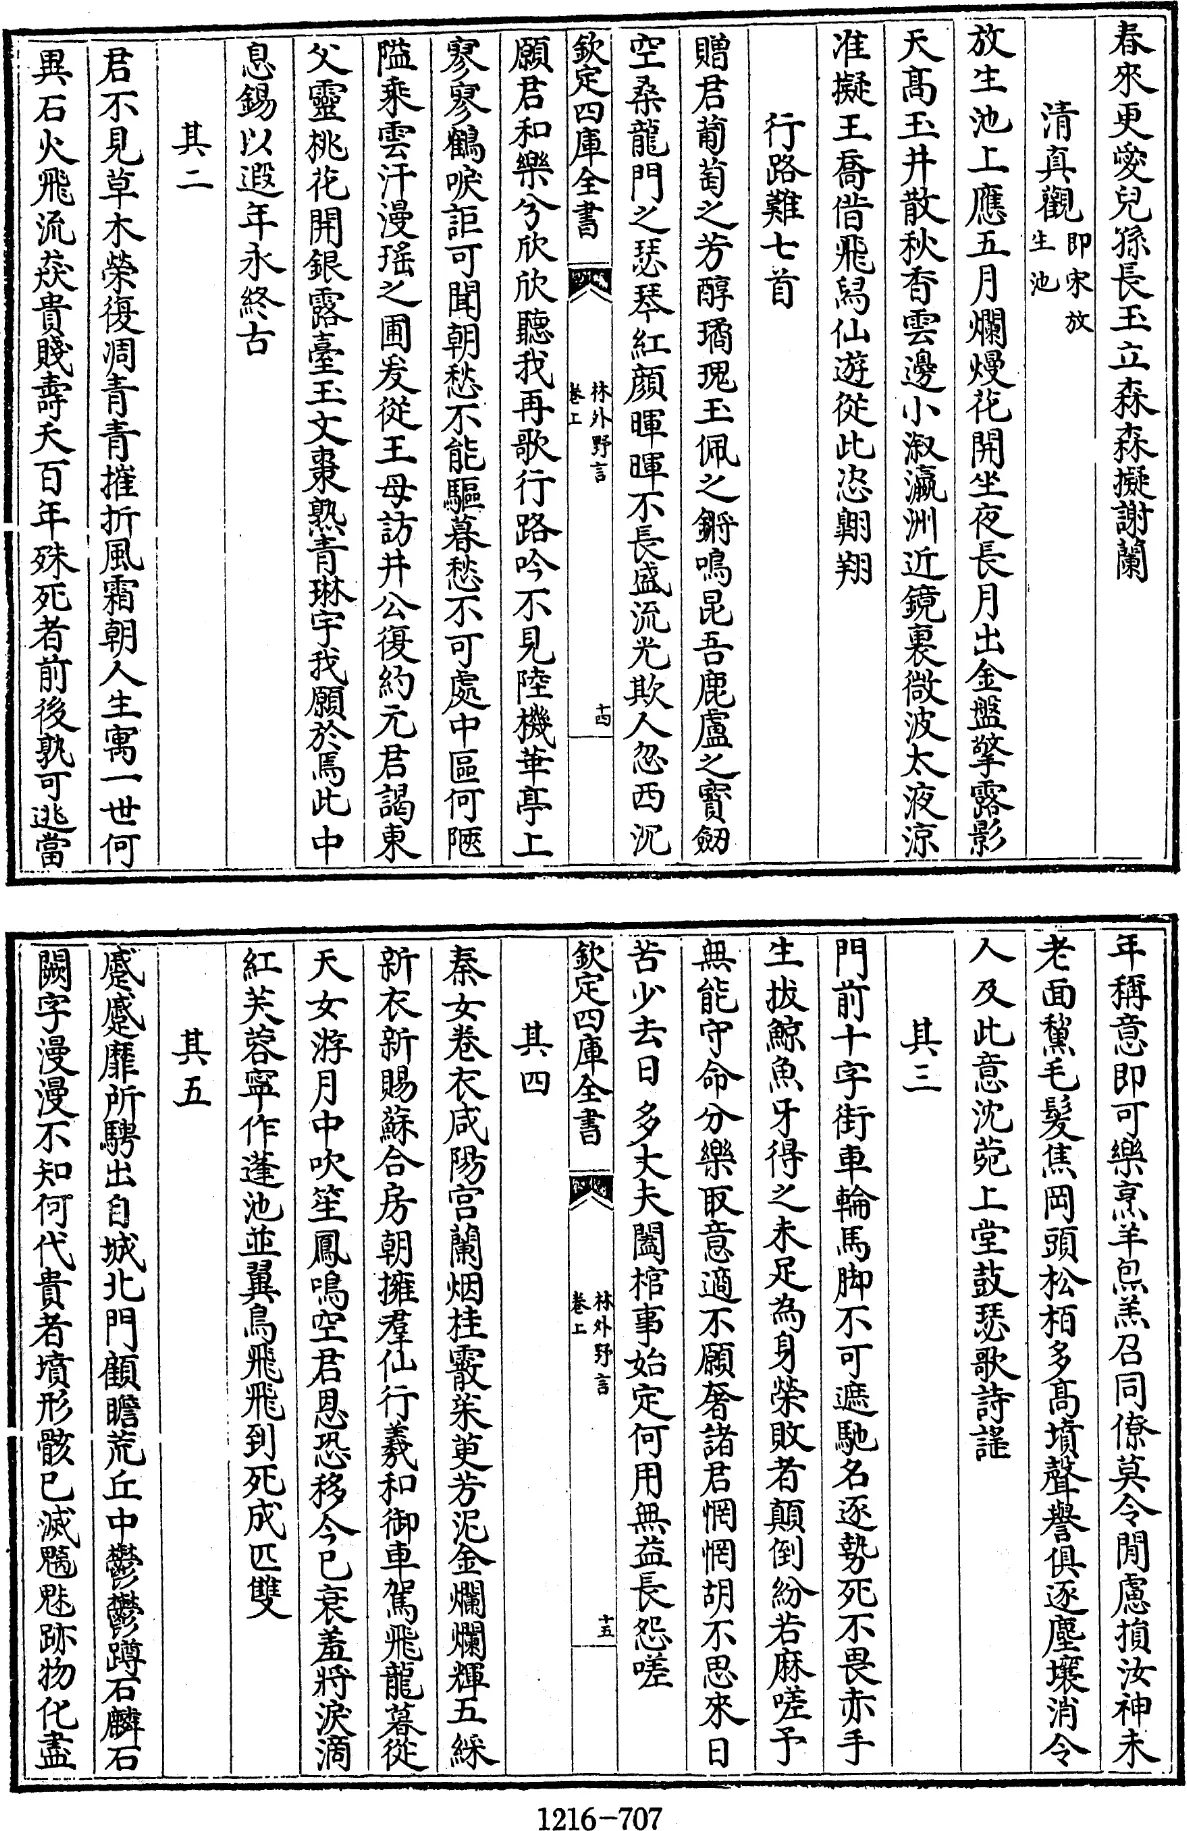 春來更愛兒孫長玉立森森擬謝蘭
清真觀即宋放
生池
放生池上應五月爛熳花開坐夜長月出金盤擎露影
天髙玉井散秋香雲邊小溆瀛洲近鏡裏微波太液涼
准擬王喬偕飛舄仙遊從此恣翺翔
行路難七首
贈君葡萄之芳醇璚瑰玉佩之鏘鳴昆吾鹿盧之寳劒
空桑龍門之瑟琴紅顔暉暉不長盛流光欺人忽西沉
欽定四庫全書
林外野言
卷上
十四
願君和樂兮欣欣聽我再歌行路吟不見陸機華亭上
寥寥鶴唳詎可聞朝愁不能驅暮愁不可處中區何陿
隘乘雲汗漫瑶之圃爰從王母訪井公復約元君謁東
父靈桃花開銀露臺玉文棗熟青琳宇我願於焉此中
息錫以遐年永終古
其二
君不見草木榮復凋青青摧折風霜朝人生寓一世何
異石火飛流猋貴賤壽夭百年殊死者前後孰可逃當
年稱意即可樂烹羊炰羔召同僚莫令閒慮損汝神未
老面黧毛髪焦岡頭松栢多髙墳聲譽俱逐塵壤消令
人及此意沈菀上堂鼓瑟歌詩謡
其三
門前十字街車輪馬脚不可遮馳名逐勢死不畏赤手
生拔鯨魚牙得之未足為身榮敗者顛倒紛若麻嗟予
無能守命分樂取意適不願奢諸君惘惘胡不思來日
苦少去日多丈夫闔棺事始定何用無益長怨嗟
欽定四庫全書
林外野言
卷上
十五
其四
秦女卷衣咸陽宫蘭烟桂霰茱萸芳泥金爛爛輝五綵
新衣新賜蘇合房朝擁羣仙行羲和御車駕飛龍暮從
天女游月中吹笙鳳鳴空君恩恐移今已衰羞將淚滴
紅芙蓉寧作蓬池並翼鳥飛飛到死成匹雙
其五
蹙蹙靡所騁出自城北門顧瞻荒丘中鬱鬱蹲石麟石
闕字漫漫不知何代貴者墳形骸已滅魑魅跡物化盡
1216-707